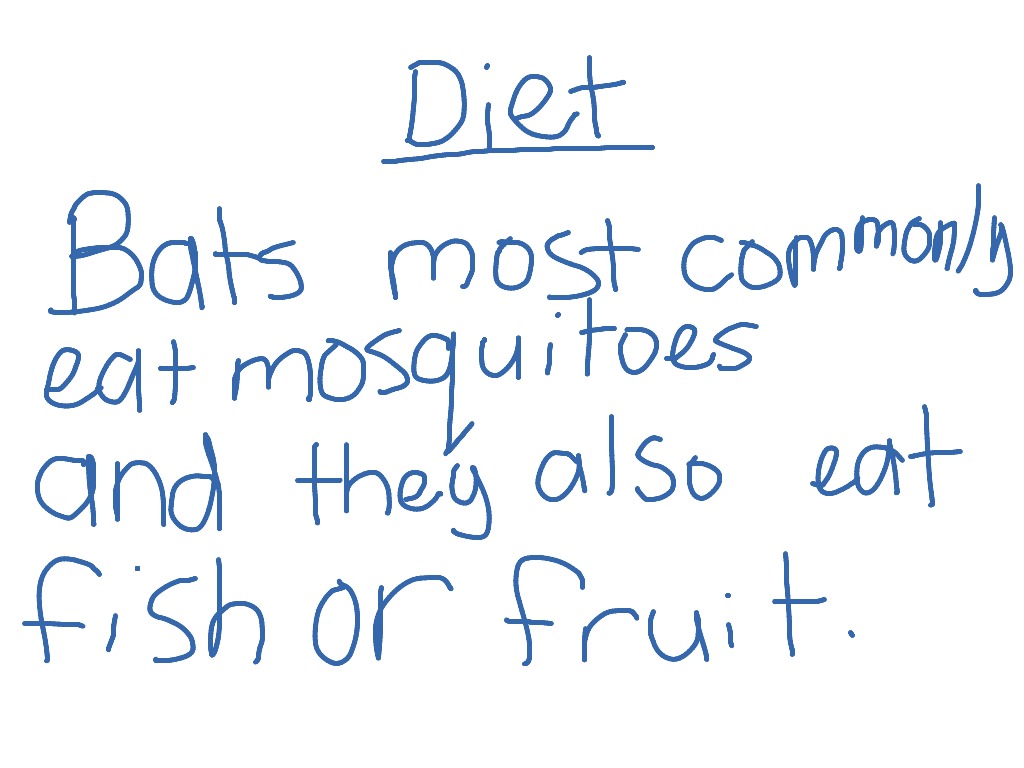 Diet
Bats most commonly
eat mosquitoes
and they also eat
fish or fruit.